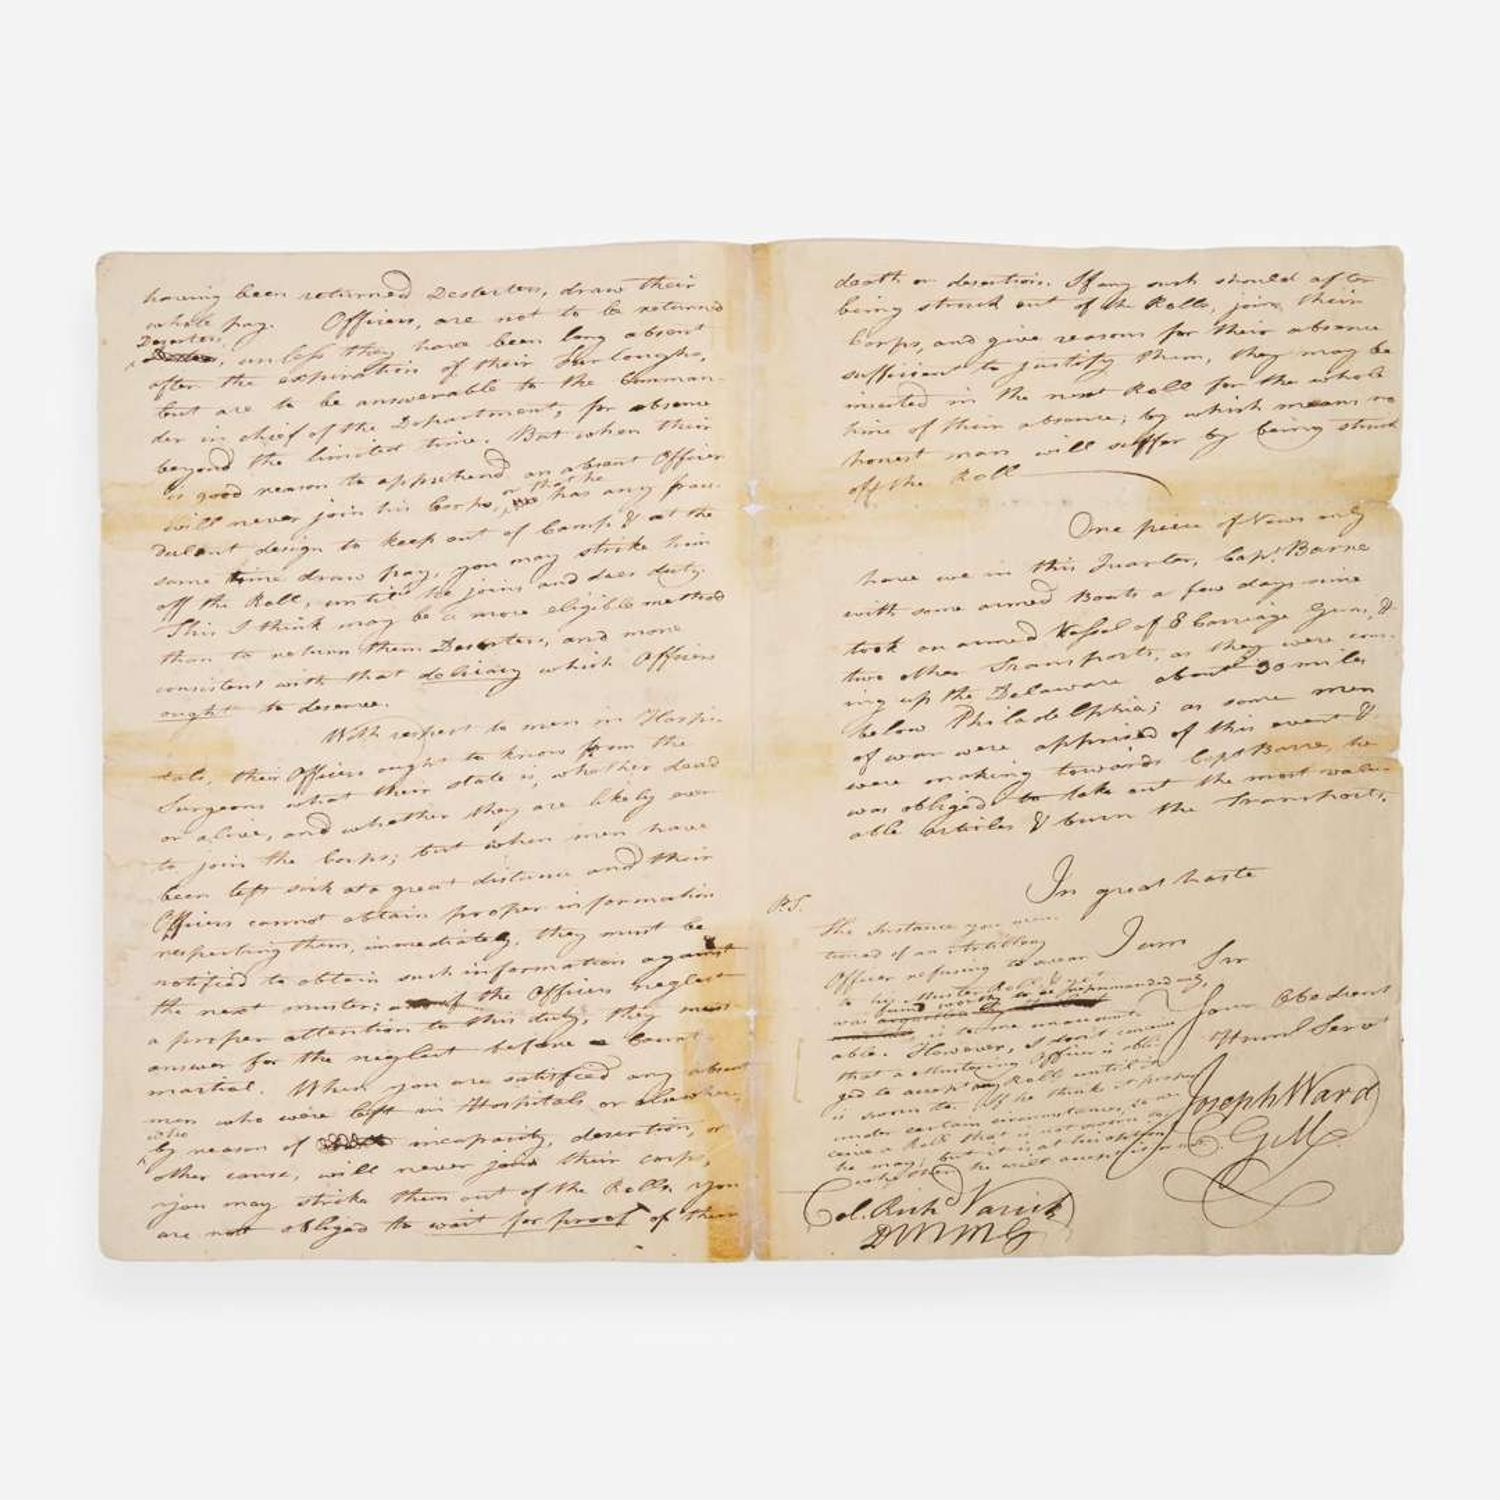 having been returned Deserters, draw their
whole pay. Officers, are not to be returned
Deserters
, unless they have been long absent
after the expiration of their Furloughs,
but are to be answerable to the Comman-
der in chief of the Department, for absence
beyond the limited time. But when their
is good reason to apprehend an absent Officer
or that he
will never join his Corps, has any frau-
dulent design to keep out of Camp & at the
same time draw pay, you may strike him
off the Roll, until he joins and does duty.
This I think may be a more eligible method
than to return them Deserters, and more
consistent with that delicacy which Officers
ought to deserve.
With respect to men in Hospi-
tals, their Officers ought to know from the
Surgeons what their state is, whether dead
or alive, and whether they are likely ever
to join the Corps; but when men have
been left sick at a great distance and their
Officers cannot obtain proper information
respecting them, immediately, they must be
notified to obtain such information against
the next muster; if the Officers neglect
a proper attention to this duty, they must
answer for the neglect before a Court-
martial. When you are satisfied any absent
men who were left in Hospitals or elsewhere,
who
by reason of incapacity, desertion, or
other cause, will never join their corps,
you may strike them out of the Rolls, you
are not obliged to wait for proof of their
death or desertion. If any such should after
being struck out of the Rolls, join their
Corps, and give reasons for their absence
sufficient to justify them, they may be
inserted in the next Roll for the whole
time of their absence; by which means no
honest man will suffer by being struck
off the Roll
One piece of News only
have we in this Quarter, Capt. Barre
with some armed Boats a few days since
took an armed Vessel of 8 Carriage Guns, &
two other Transports, as they were com-
ing up the Delaware about 30 miles
below Philadelphia; as some men
of war were apprised of this event &
were making towards Capt Barre, he
was obliged to take out the most valu-
able articles & burn the Transports.
In great haste
I am
Sir
Your Obedient
Huml Servt
Joseph Ward
C. G. M.
P.S.
The Instance you men-
tioned of an Artillery
Officer refusing to swear
to his Muster Roll & yet
was
is to me unaccount-
able. However, I don't conceive
that a Mustering Officer is obli-
ged to accept any Roll until it
is sworn to. If he think it proper
under certain circumstances, to re-
ceive a Roll that is not sworn to
he may, but it is at his option
whether he will accept it or not
Col. Richd Varick
DMMG